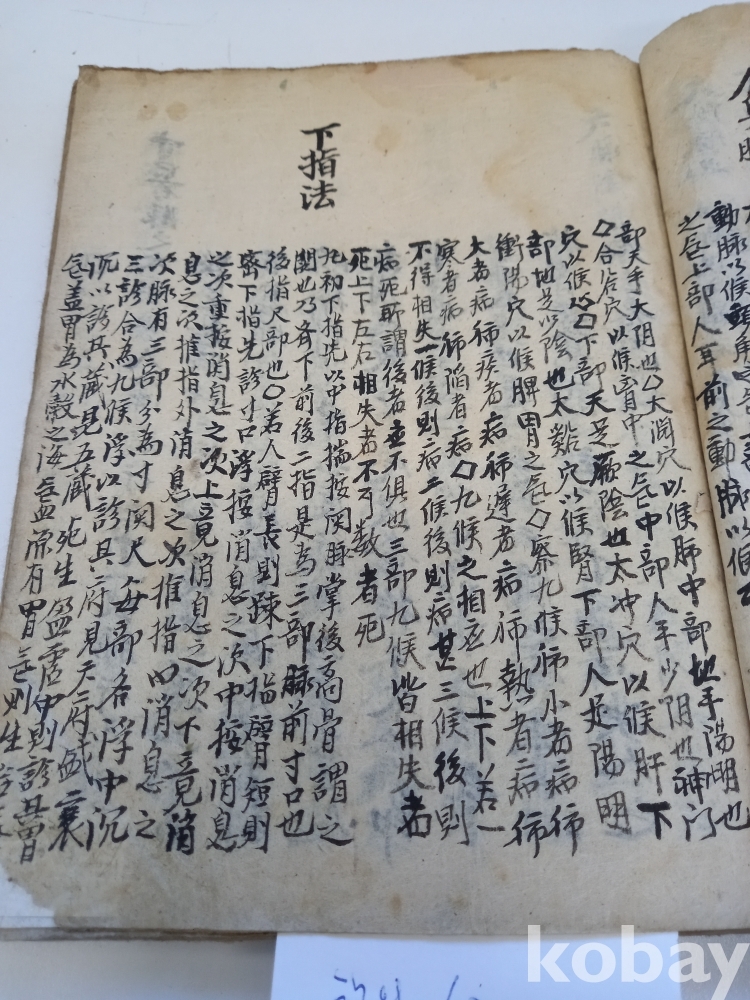 動脉以候頭角
之气上部人耳前之動脉以候
部天手大阴也○大渊穴以候肺中部地手陽明也
○合谷穴以候胷中之气中部人手少阴也神门
穴以候心○下部天足厥陰也太冲穴以候肝下
部地足少陰也太谿穴以候腎下部人足陽明
衝陽穴以候脾胃之气○察九候獨小者病獨
大者病獨疾者病獨遲者病獨熱者病獨
寒者病獨陷者病○九候之相應也上下若一
不得相失一候後則病二候後則病甚三候後則
病死所謂後者並不俱也三部九候皆相失者
死上下左右相失者不可数者死
下指法
九初下指先以中指揣按関脉掌後高骨謂之
関也乃齐下前後二指是為三部脉前寸口也
後指尺部也○若人臂長則踈下指臂短則
齊下指先診寸口浮按消息之次中按消息
之次重按消息之次上竟消息之次下竟消
息之次推指外消息之次推指内消息之
次脉有三部分為寸関尺每部各浮中沉
三診合為九候浮以診其府見六府盛衰
沉以診其蔵見五蔵死生盈虚中則診其胃
气盖胃為水穀之海有胃气則生